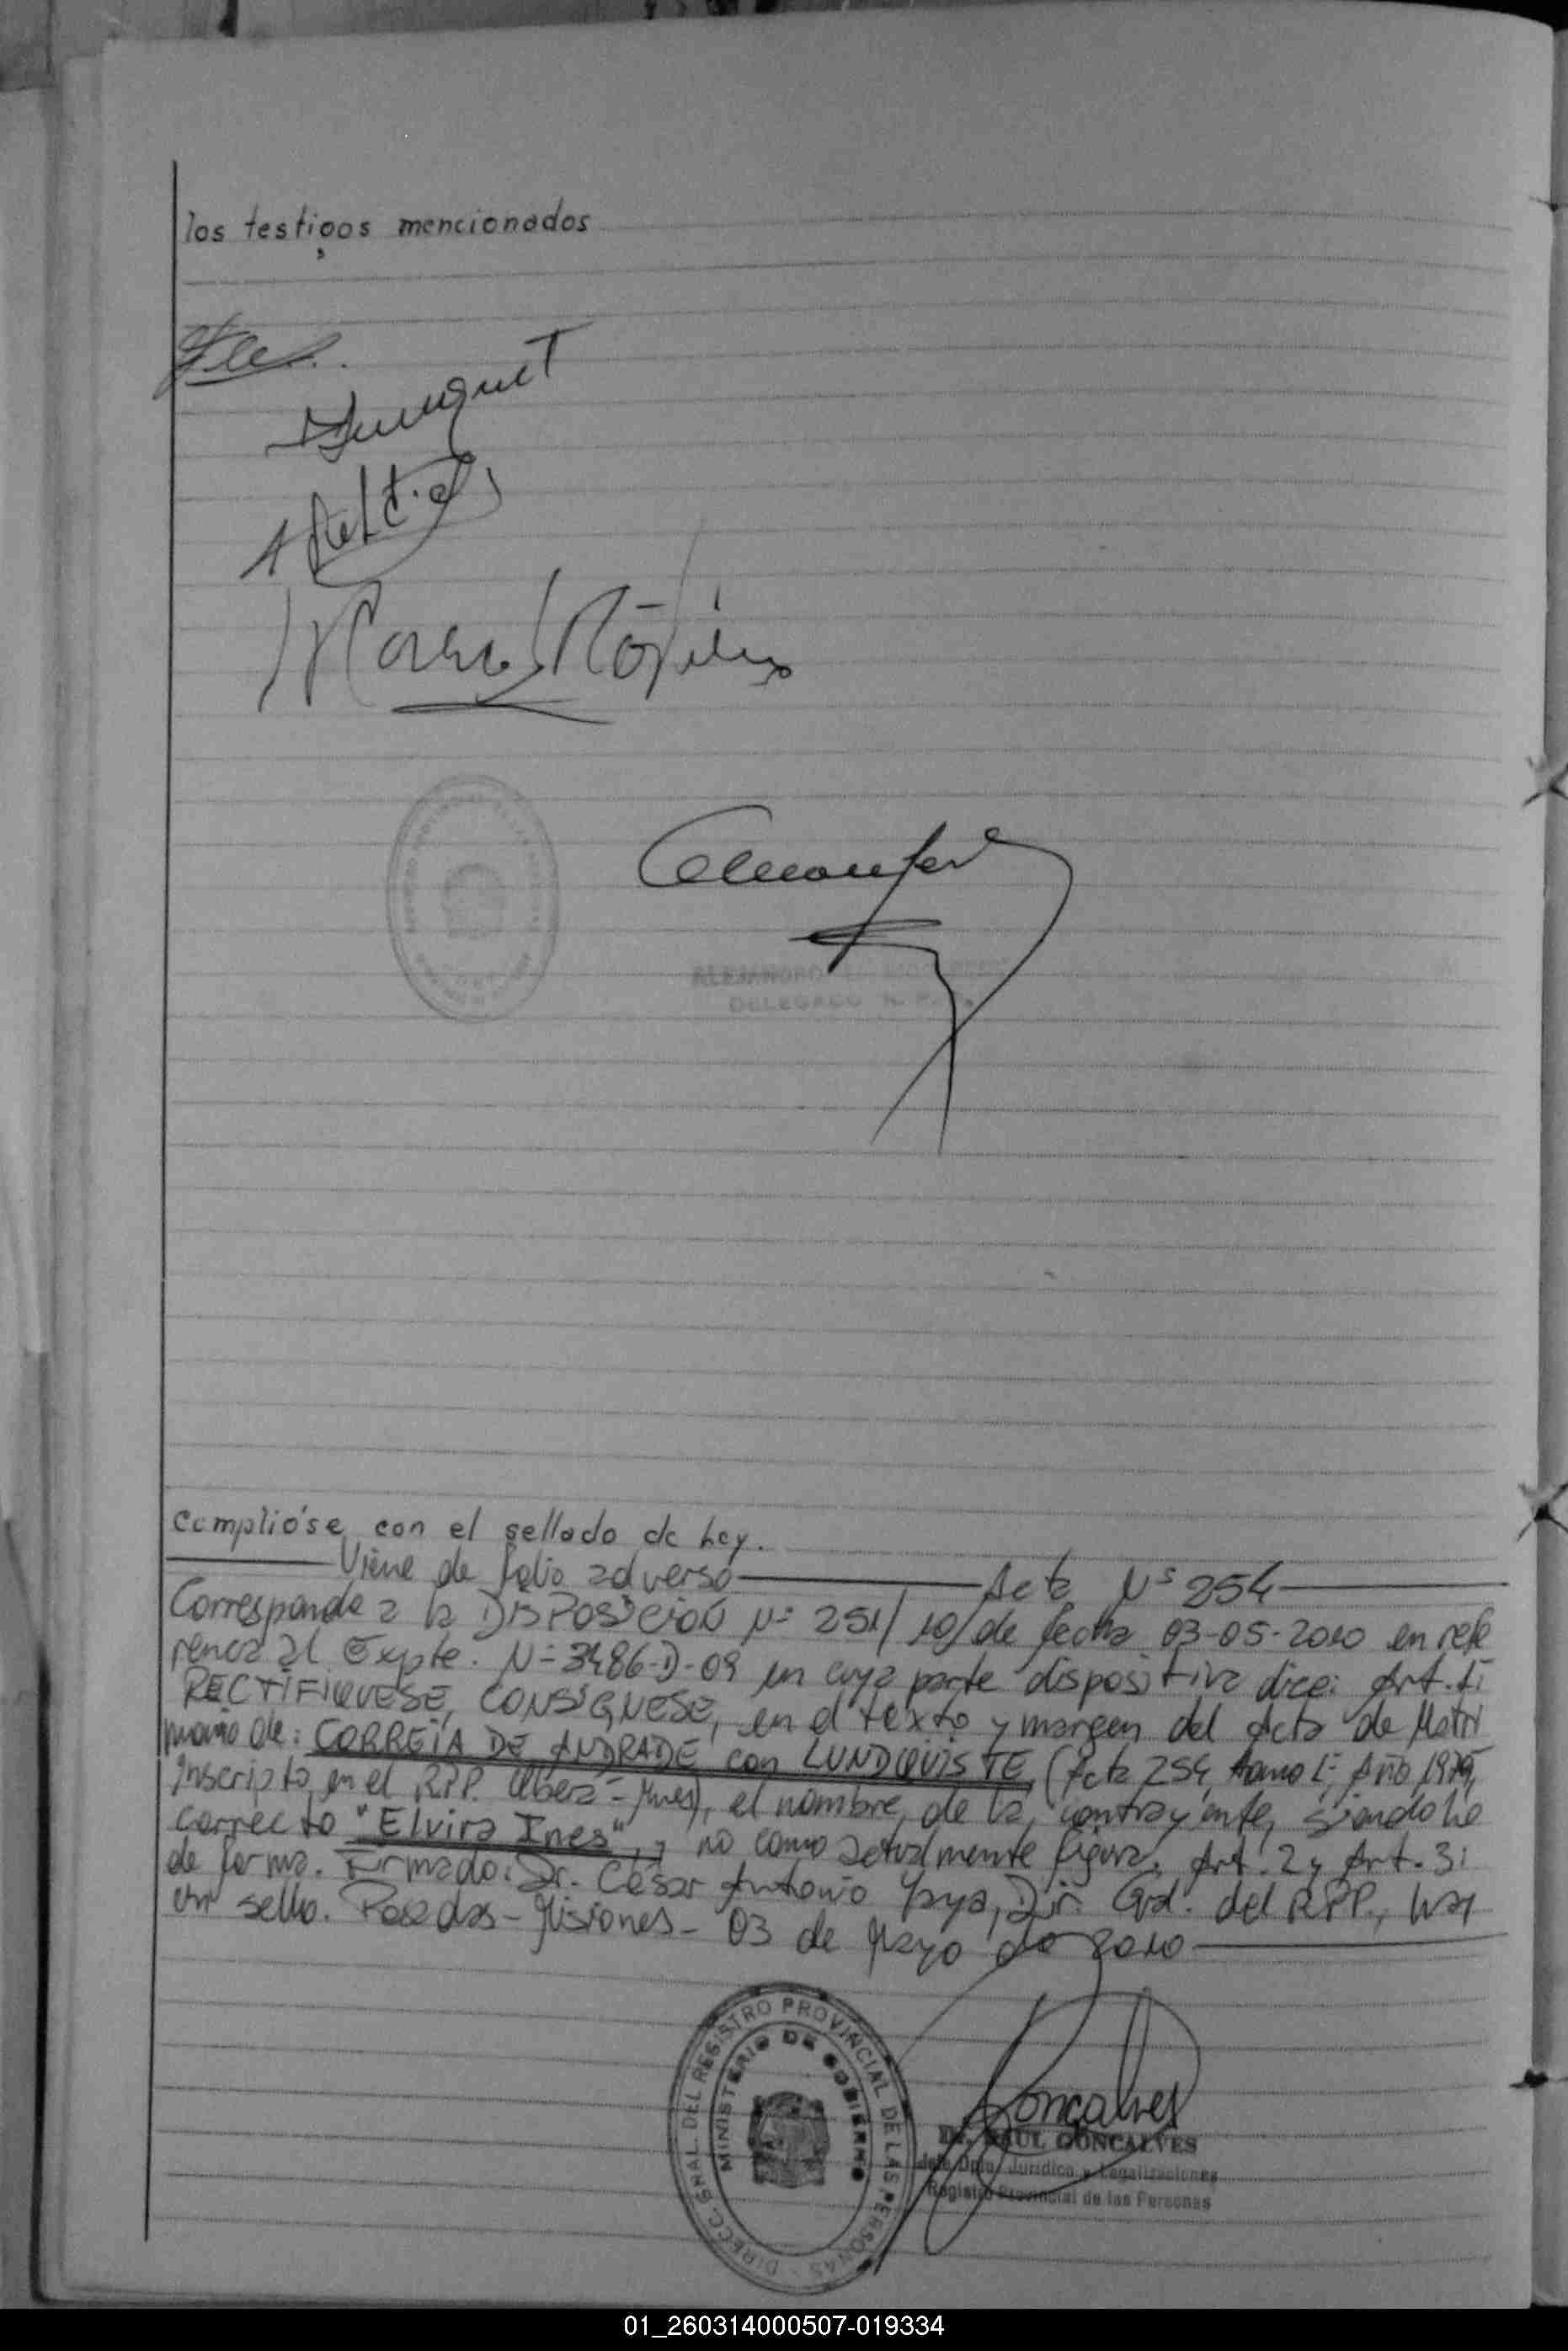 los testigos mencionados
Complióse con el sellado de Ley.
Viene de folio adverso Acta Nº 254
Corresponde a la DISPOSICION Nº 251/10/de fecha 03-05-2010 en refe
rencia al Expte. Nº 3486-D-09 en cuya parte dispositiva dice: Art. 1:
RECTIFIQUESE, CONSIGNESE, en el texto y margen del Acta de Matri
monio de: CORREIA DE ANDRADE con LUNDQUISTE, (Acta 254, tomo 1º, Año 1979,
Inscripto en el RPP. Oberá - Mnes), el nombre, de la, contrayente, siendo lo
correcto "Elvira Ines", y no como actualmente figura. Art. 2 y Art. 3:
de forma. Firmado: Dr. César Antonio Yaya, Dir. Gral. del RPP., hay
un sello. Posadas - Misiones - 03 de Mayo de 2010
DIRECC. GRAL. DEL REGISTRO PROVINCIAL DE LAS PERSONAS
MINISTERIO DE GOBIERNO
Goncalves
Dr. RAUL GONCALVES
Jefe Dpto. Jurídico y Legalizaciones
Registro Provincial de las Personas
ALEJANDRO
DELEGADO R. P.
01_260314000507-019334